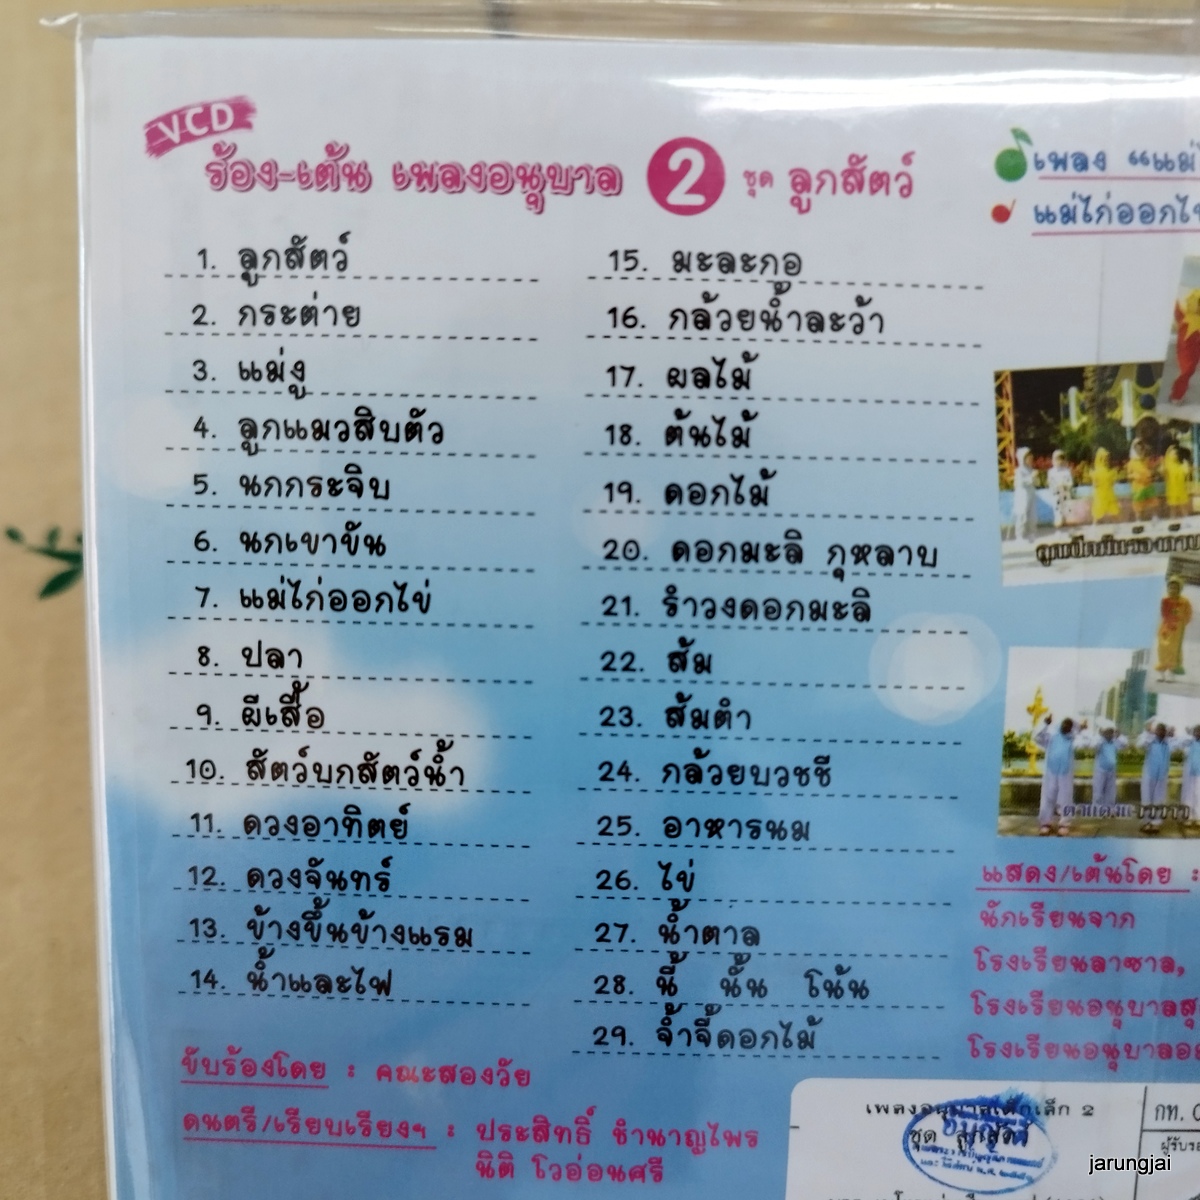 VCD
ร้อง-เต้น เพลงอนุบาล 2 ชุด ลูกสัตว์
1. ลูกสัตว์
2. กระต่าย
3. แม่งู
4. ลูกแมวสิบตัว
5. นกกระจิบ
6. นกเขาขัน
7. แม่ไก่ออกไข่
8. ปลา
9. ผีเสื้อ
10. สัตว์บกสัตว์น้ำ
11. ดวงอาทิตย์
12. ดวงจันทร์
13. ข้างขึ้นข้างแรม
14. น้ำและไฟ
15. มะละกอ
16. กล้วยน้ำละว้า
17. ผลไม้
18. ต้นไม้
19. ดอกไม้
20. ดอกมะลิ กุหลาบ
21. รำวงดอกมะลิ
22. ส้ม
23. ส้มตำ
24. กล้วยบวชชี
25. อาหารนม
26. ไข่
27. น้ำตาล
28. นี้ นั้น โน้น
29. จ้ำจี้ดอกไม้
ขับร้องโดย : คณะสองวัย
ดนตรี/เรียบเรียงฯ : ประสิทธิ์ ชำนาญไพร
นิติ โวอ่อนศรี
เพลง “แม่
แม่ไก่ออกไข่
แสดง/เต้นโดย :
นักเรียนจาก
โรงเรียนลาซาล,
โรงเรียนอนุบาลสุ
โรงเรียนอนุบาล
เพลงอนุบาลเด็กเล็ก 2
ชุด ลูกสัตว์
กท.
ผู้รับรอ
jarungjai